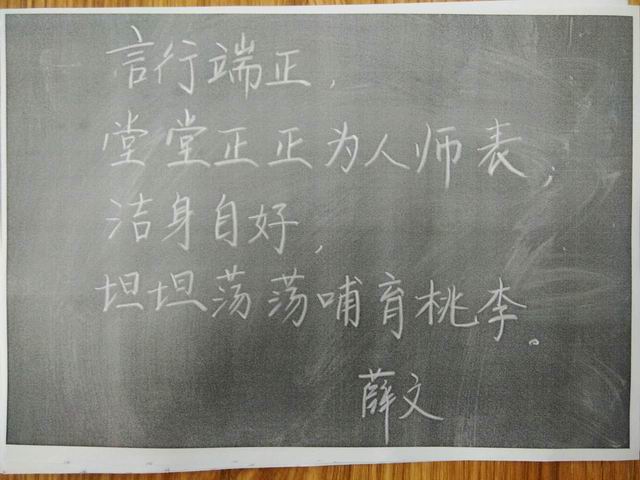 言行端正,
堂堂正正为人师表,
洁身自好,
坦坦荡荡哺育桃李。
薛文